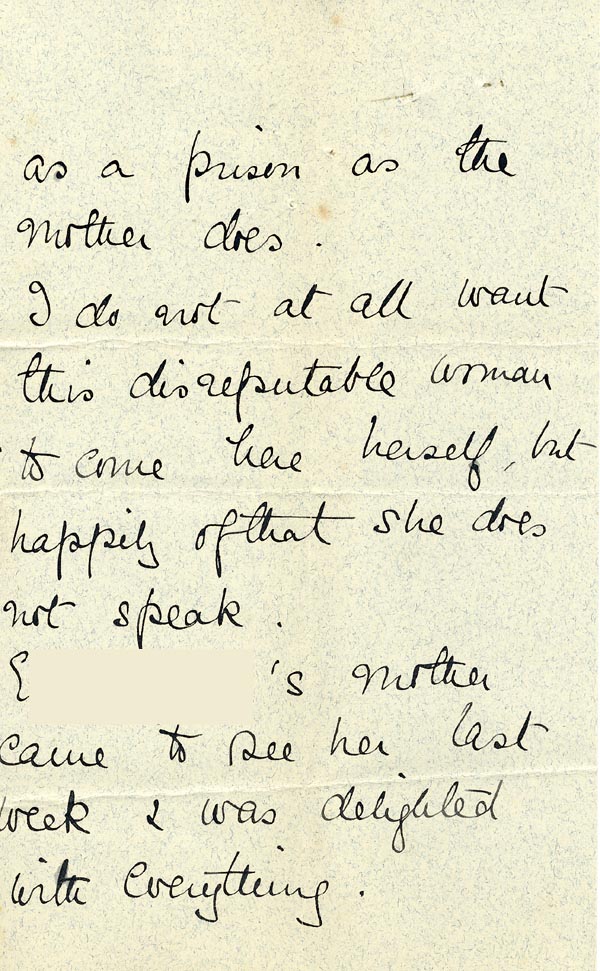 as a prison as the
mother does.
I do not at all want
this disreputable woman
to come here herself, but
happily of that she does
not speak.
E 's mother
came to see her last
week & was delighted
with everything.